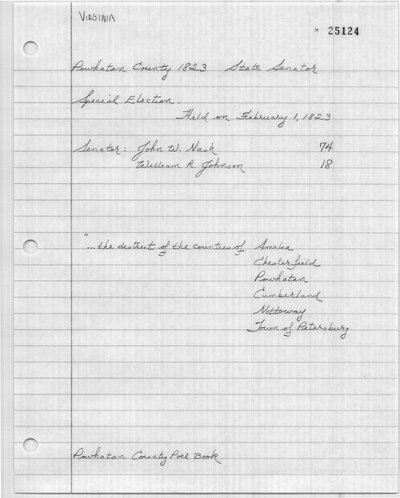 VIRGINIA
* 25124
Powhatan County 1823 State Senator
Special Election.
Held on February 1, 1823
Senator: John W. Nash 74
William R. Johnson 18
"...the district of the counties of Amelia
Chesterfield
Powhatan
Cumberland
Nottoway
Town of Petersburg
Powhatan County Poll Book